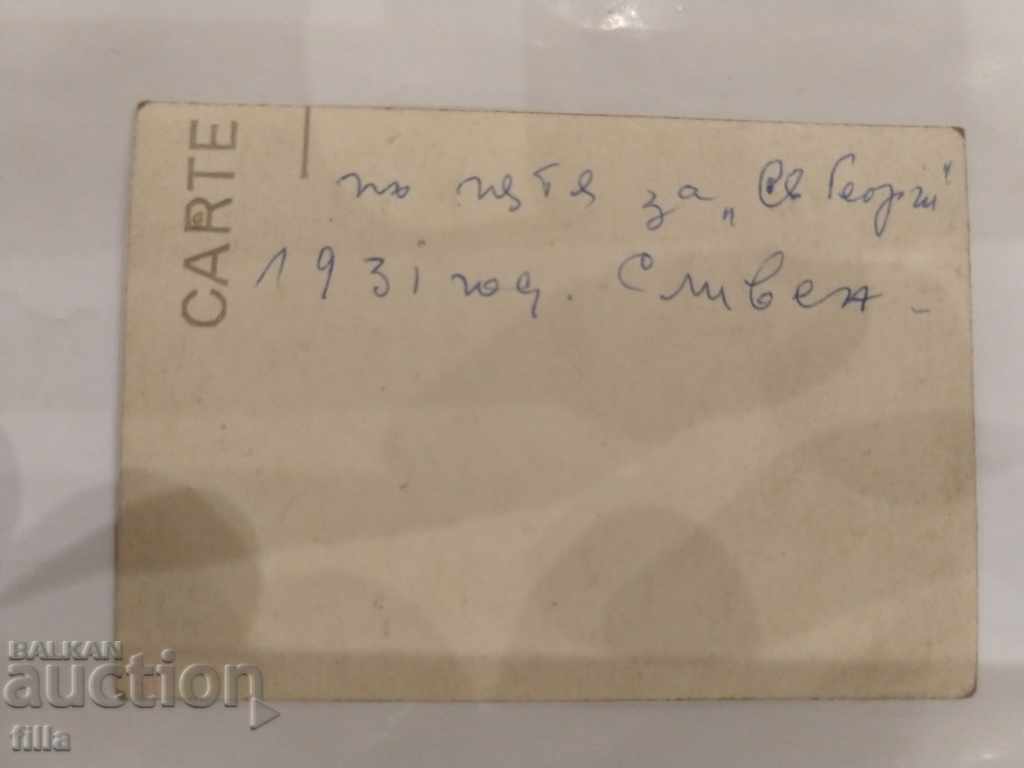 CARTE
по пътя за „Св Георги"
1931 год. Сливен -
BALKAN
auction
filla